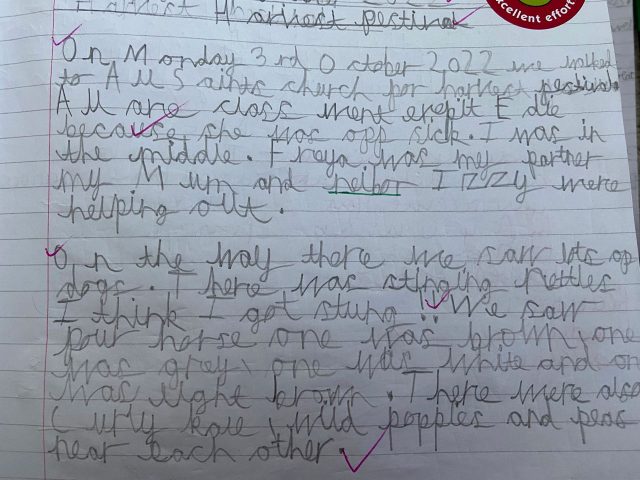 Harvest Harvest festival
excellent effort
On Monday 3rd October 2022 we walked
to All Saints church for harvest festival.
All are class went exept Edie
because she was off sick. I was in
the middle. Freya was my partner
my Mum and neibor Izzy were
helping out.
On the way there we saw lots of
dogs. There was stinging nettles
I think I got stung!! We saw
four horse one was brown, one
was grey, one was white and on
was light brown. There were also
Curly kale, wild poppies and peas
near each other.